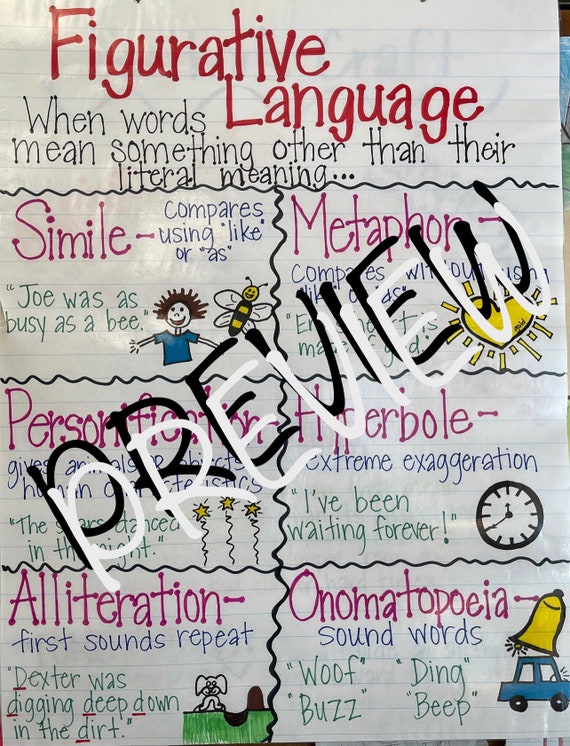 Figurative
Language
When words
mean something other than their
literal meaning...
Simile-
Compares
using "like"
or "as"
"Joe was as
busy as a bee."
Metaphor-
compares without using
"like" or "as"
made of gold
gold
Personification-
gives animals or objects
human characteristics
"The stars danced
in the night."
Hyperbole-
extreme exaggeration
"I've been
waiting forever!"
Alliteration-
first sounds repeat
"Dexter was
digging deep down
in the dirt."
Onomatopoeia-
sound words
"Woof" "Ding"
"Buzz" "Beep"
PREVIEW